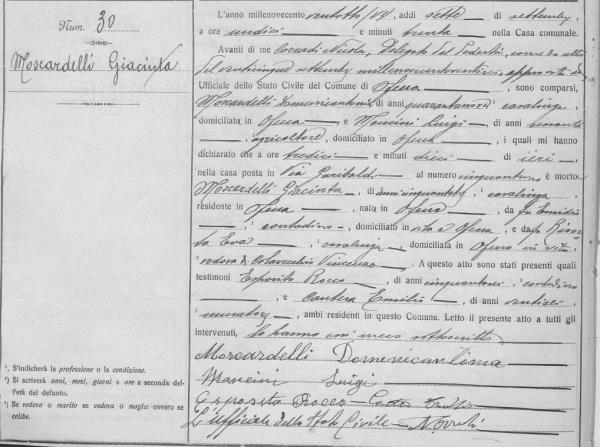 Num. 30
Moscardelli Giacinta
L'anno millenovecento ventotto/VI, addì sette di settembre
a ore undici e minuti trenta nella Casa comunale.
Avanti di me Corradi Nicola, Delegato dal Podestà, come da atto
del venticinque settembre millenovecentoventisei, approvato
Ufficiale dello Stato Civile del Comune di Ofena, sono comparsi,
Moscardelli Domenicantonia di anni casalinga
domiciliata in Ofena e Mancini Luigi di anni sessanta
agricoltore, domiciliato in Ofena, i quali mi hanno
dichiarato che a ore tredici e minuti dieci di ieri,
nella casa posta in Via Garibaldi al numero è morta
Moscardelli Giacinta, di anni, casalinga,
residente in Ofena, nata in Ofena, da fu Emilio
, contadino, domiciliato in vita a Ofena, e da fu
Eva, casalinga, domiciliata in Ofena in vita
vedova di Vincenzo. A questo atto sono stati presenti quali
testimoni Esposito Rocco, di anni, contadino
, e Cantera Emilio, di anni ventisei
muratore, ambi residenti in questo Comune. Letto il presente atto a tutti gli
intervenuti, lo hanno con meco sottoscritto
Moscardelli Domenicantonia
Mancini Luigi
Esposito Rocco
L'Ufficiale dello Stato Civile
¹. S'indicherà la professione o la condizione.
²) Si scriverà anni, mesi, giorni e ore a seconda del-
l'età del defunto.
³) Se vedovo o marito se vedova o moglie ovvero se
celibe.